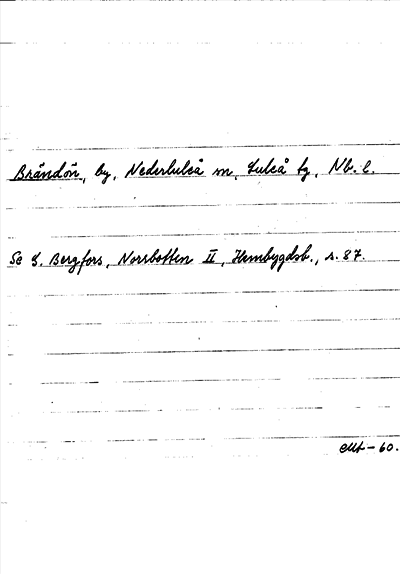 Brändön, by, Nederluleå sn, Luleå tg, Nb. l.
Se G. Bergfors, Norrbotten II, Hembygdsb., s. 87.
-60.